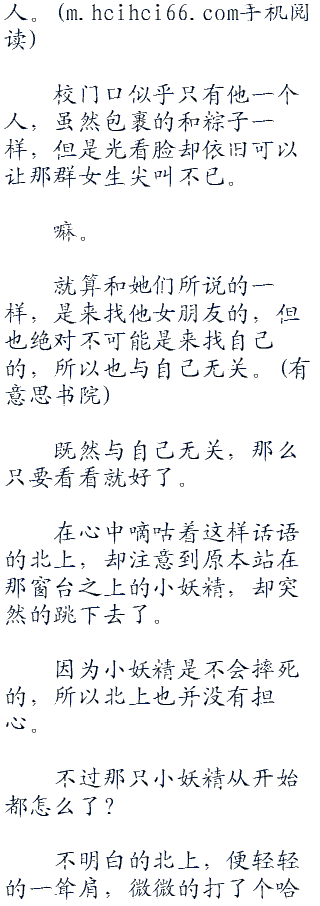 人。(m.hcihci66.com手机阅
读)
校门口似乎只有他一个
人，虽然包裹的和粽子一
样，但是光看脸却依旧可以
让那群女生尖叫不已。
嘛。
就算和她们所说的一
样，是来找他女朋友的，但
也绝对不可能是来找自己
的，所以也与自己无关。(有
意思书院)
既然与自己无关，那么
只要看看就好了。
在心中嘀咕着这样话语
的北上，却注意到原本站在
那窗台之上的小妖精，却突
然的跳下去了。
因为小妖精是不会摔死
的，所以北上也并没有担
心。
不过那只小妖精从开始
都怎么了？
不明白的北上，便轻轻
的一耸肩，微微的打了个哈